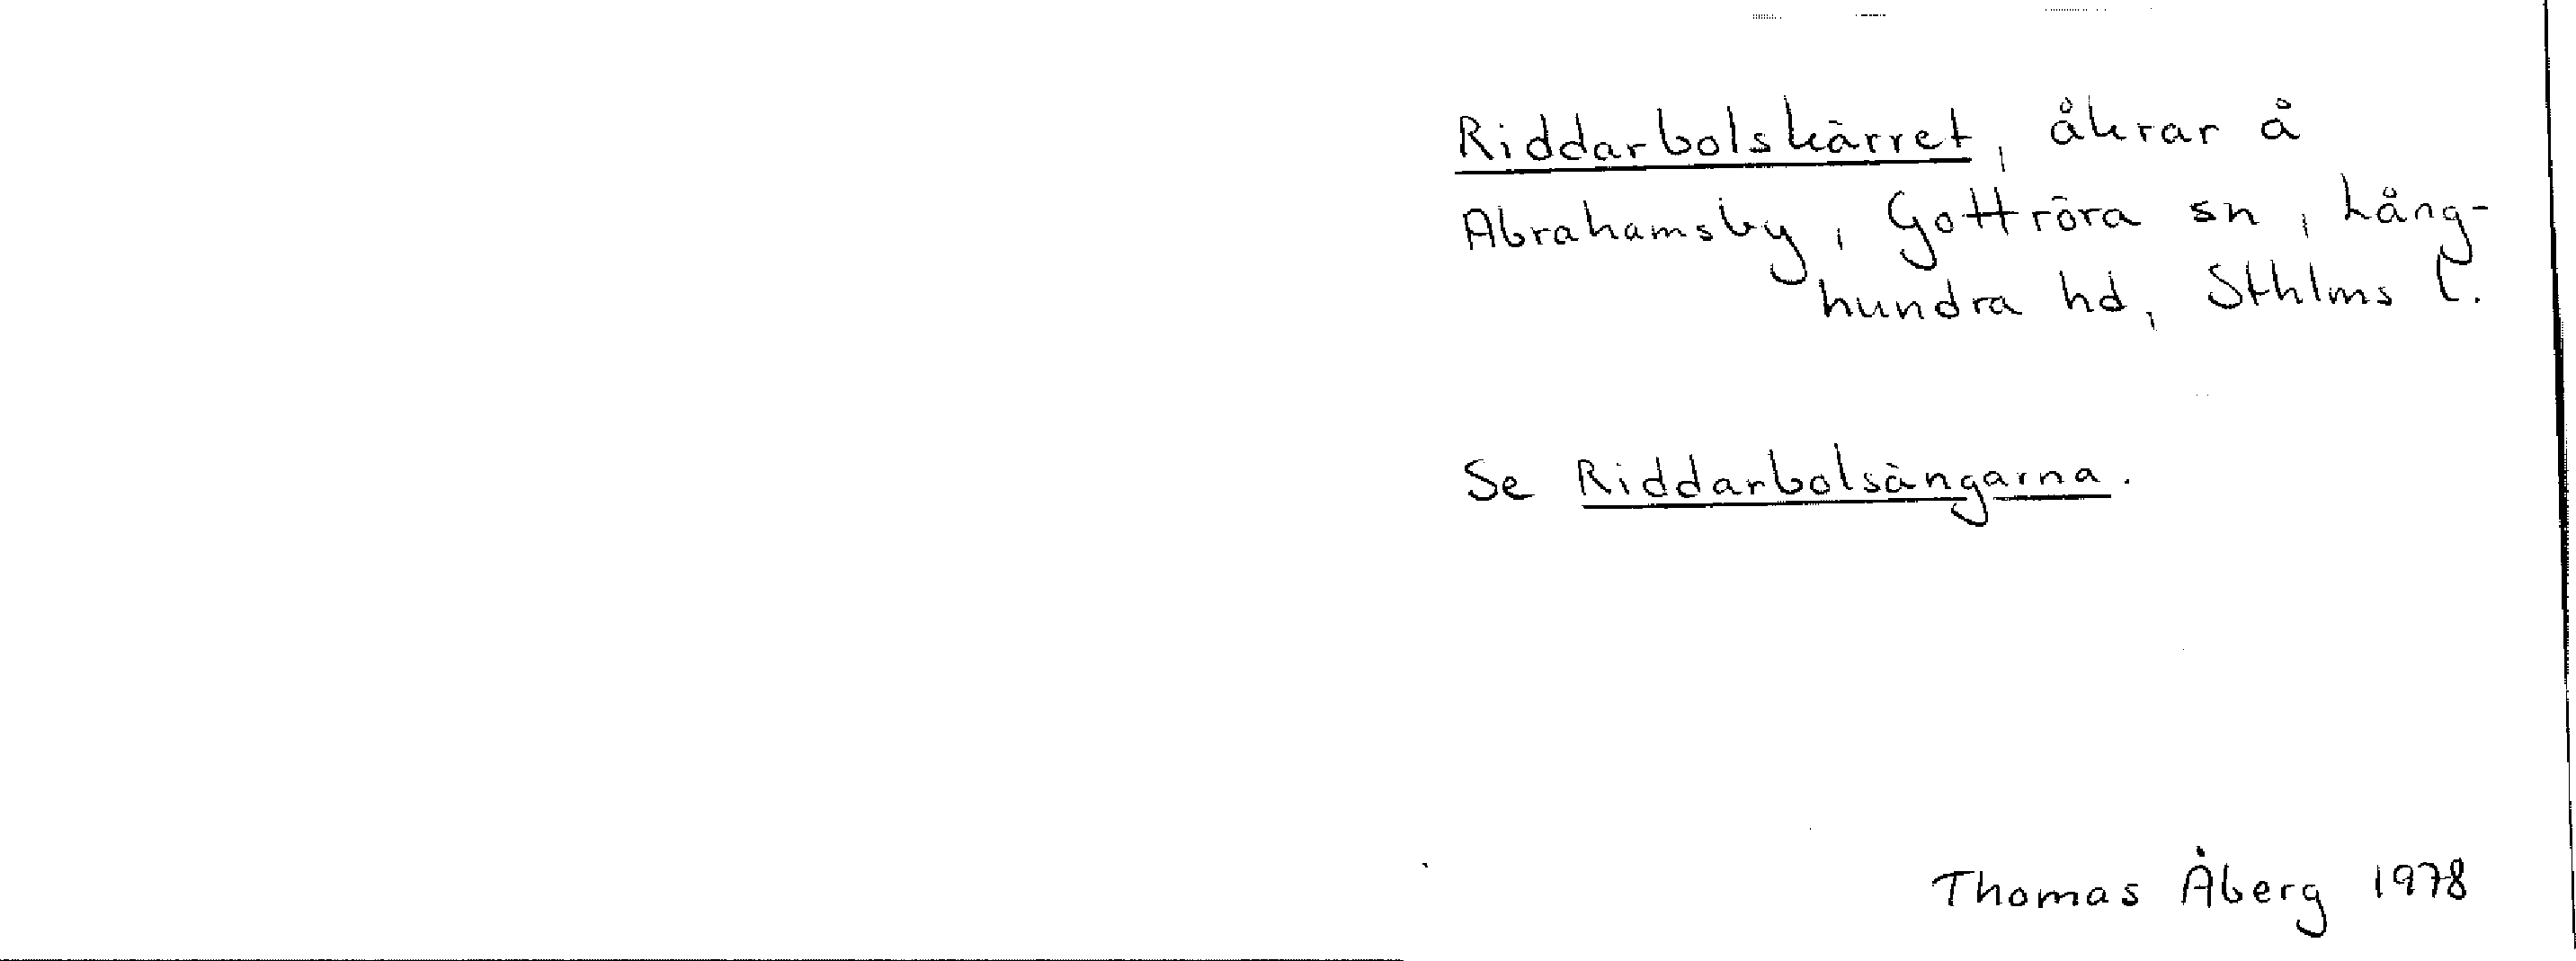 Riddarbolskärret, åkrar å
Abrahamsby, Gottröra sn, Lång-
hundra hd, Sthlms l.
Se Riddarbolsängarna.
Thomas Åberg 1978